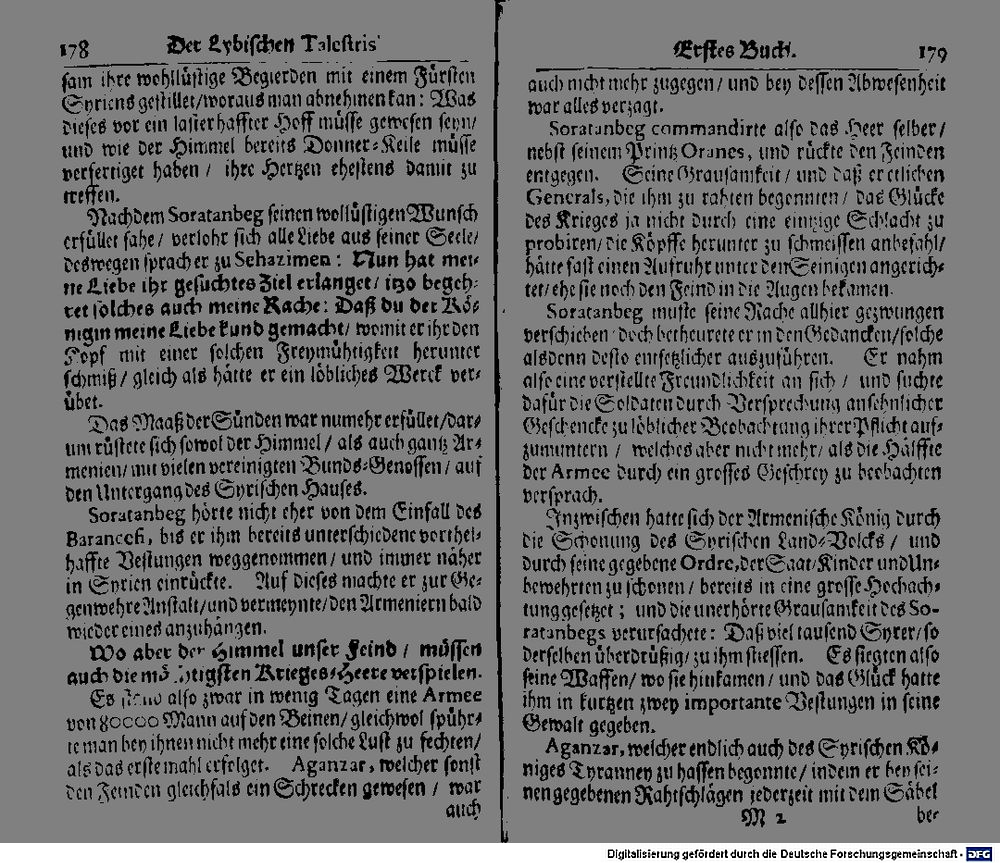 178 Der Lybischen Talestris
sam ihre wohllüstige Begierden mit einem Fürsten
Syriens gestillet/woraus man abnehmen kan: Was
dieses vor ein lasterhaffter Hoff müsse gewesen seyn/
und wie der Himmel bereits Donner-Keile müsse
verfertiget haben / ihre Hertzen ehestens damit zu
treffen.
Nachdem Soratanbeg seinen wollüstigen Wunsch
erfüllet sahe/ verlohr sich alle Liebe aus seiner Seele/
deswegen sprach er zu Sehazimen: Nun hat mei-
ne Liebe ihr gesuchtes Ziel erlanget/ itzo begeh-
ret solches auch meine Rache: Daß du der Kö-
nigin meine Liebe kund gemacht/ womit er ihr den
Kopf mit einer solchen Freymühtigkeit herunter
schmiß/ gleich als hätte er ein löbliches Werck ver-
übet.
Das Maaß der Sünden war numehr erfüllet/dar-
um rüstete sich sowol der Himmel/ als auch gantz Ar-
menien/ mit vielen vereinigten Bunds-Genossen/ auf
den Untergang des Syrischen Hauses.
Soratanbeg hörte nicht eher von dem Einfall des
Baranceñ, bis er ihm bereits unterschiedene vorthel-
haffte Vestungen weggenommen/ und immer näher
in Syrien einrückte. Auf dieses machte er zur Ge-
genwehre Anstalt/und vermeynte/den Armeniern bald
wieder eines anzuhängen.
Wo aber der Himmel unser Feind / müssen
auch die mächtigsten Krieges-Heere verspielen.
Es stand also zwar in wenig Tagen eine Armee
von 80000 Mann auf den Beinen/ gleichwol spühr-
te man bey ihnen nicht mehr eine solche Lust zu fechten/
als das erstemahl erfolget. Aganzar, welcher sonst
den Feinden gleichfals ein Schrecken gewesen / war
auch
Erstes Buch. 179
auch nicht mehr zugegen/ und bey dessen Abwesenheit
war alles verzagt.
Soratanbeg commandirte also das Heer selber/
nebst seinem Printz Oranes, und rückte den Feinden
entgegen. Seine Grausamkeit/ und daß er etlichen
Generals, die ihm zu rahten begennten/ das Glücke
des Krieges ja nicht durch eine eintzige Schlacht zu
probiren/ die Köpffe herunter zu schmeissen anbefahl/
hätte fast einen Aufruhr unter den Seinigen angerich-
tet/ ehe sie noch den Feind in die Augen bekamen.
Soratanbeg muste seine Rache allhier gezwungen
verschieben doch betheurete er in den Gedancken/solche
alsdenn desto entsetzlicher auszuführen. Er nahm
also eine verstellte Freundlichkeit an sich / und suchte
dafür die Soldaten durch Versprechung ansehnlicher
Geschencke zu löblicher Beobachtung ihrer Pflicht auf-
zumuntern / welches aber nicht mehr/ als die Hälffte
der Armee durch ein grosses Geschrey zu beobachten
versprach.
Inzwischen hatte sich der Armenische König durch
die Schonung des Syrischen Land-Volcks / und
durch seine gegebene Ordre, der Saat/Kinder und Un-
bewehrten zu schonen/ bereits in eine grosse Hochach-
tung gesetzet; und die unerhörte Grausamkeit des So-
ratanbegs verursachete: Daß viel tausend Syrer/so
derselben überdrüßig/ zu ihm stiessen. Es siegten also
seine Waffen/ wo sie hinkamen/ und das Glück hatte
ihm in kurtzen zwey importante Vestungen in seine
Gewalt gegeben.
Aganzar, welcher endlich auch des Syrischen Kö-
niges Tyranney zu hassen begonnte/ indem er bey sei-
nen gegebenen Rahtschlägen jederzeit mit dem Säbel
M 2 be-
Digitalisierung gefördert durch die Deutsche Forschungsgemeinschaft - DFG